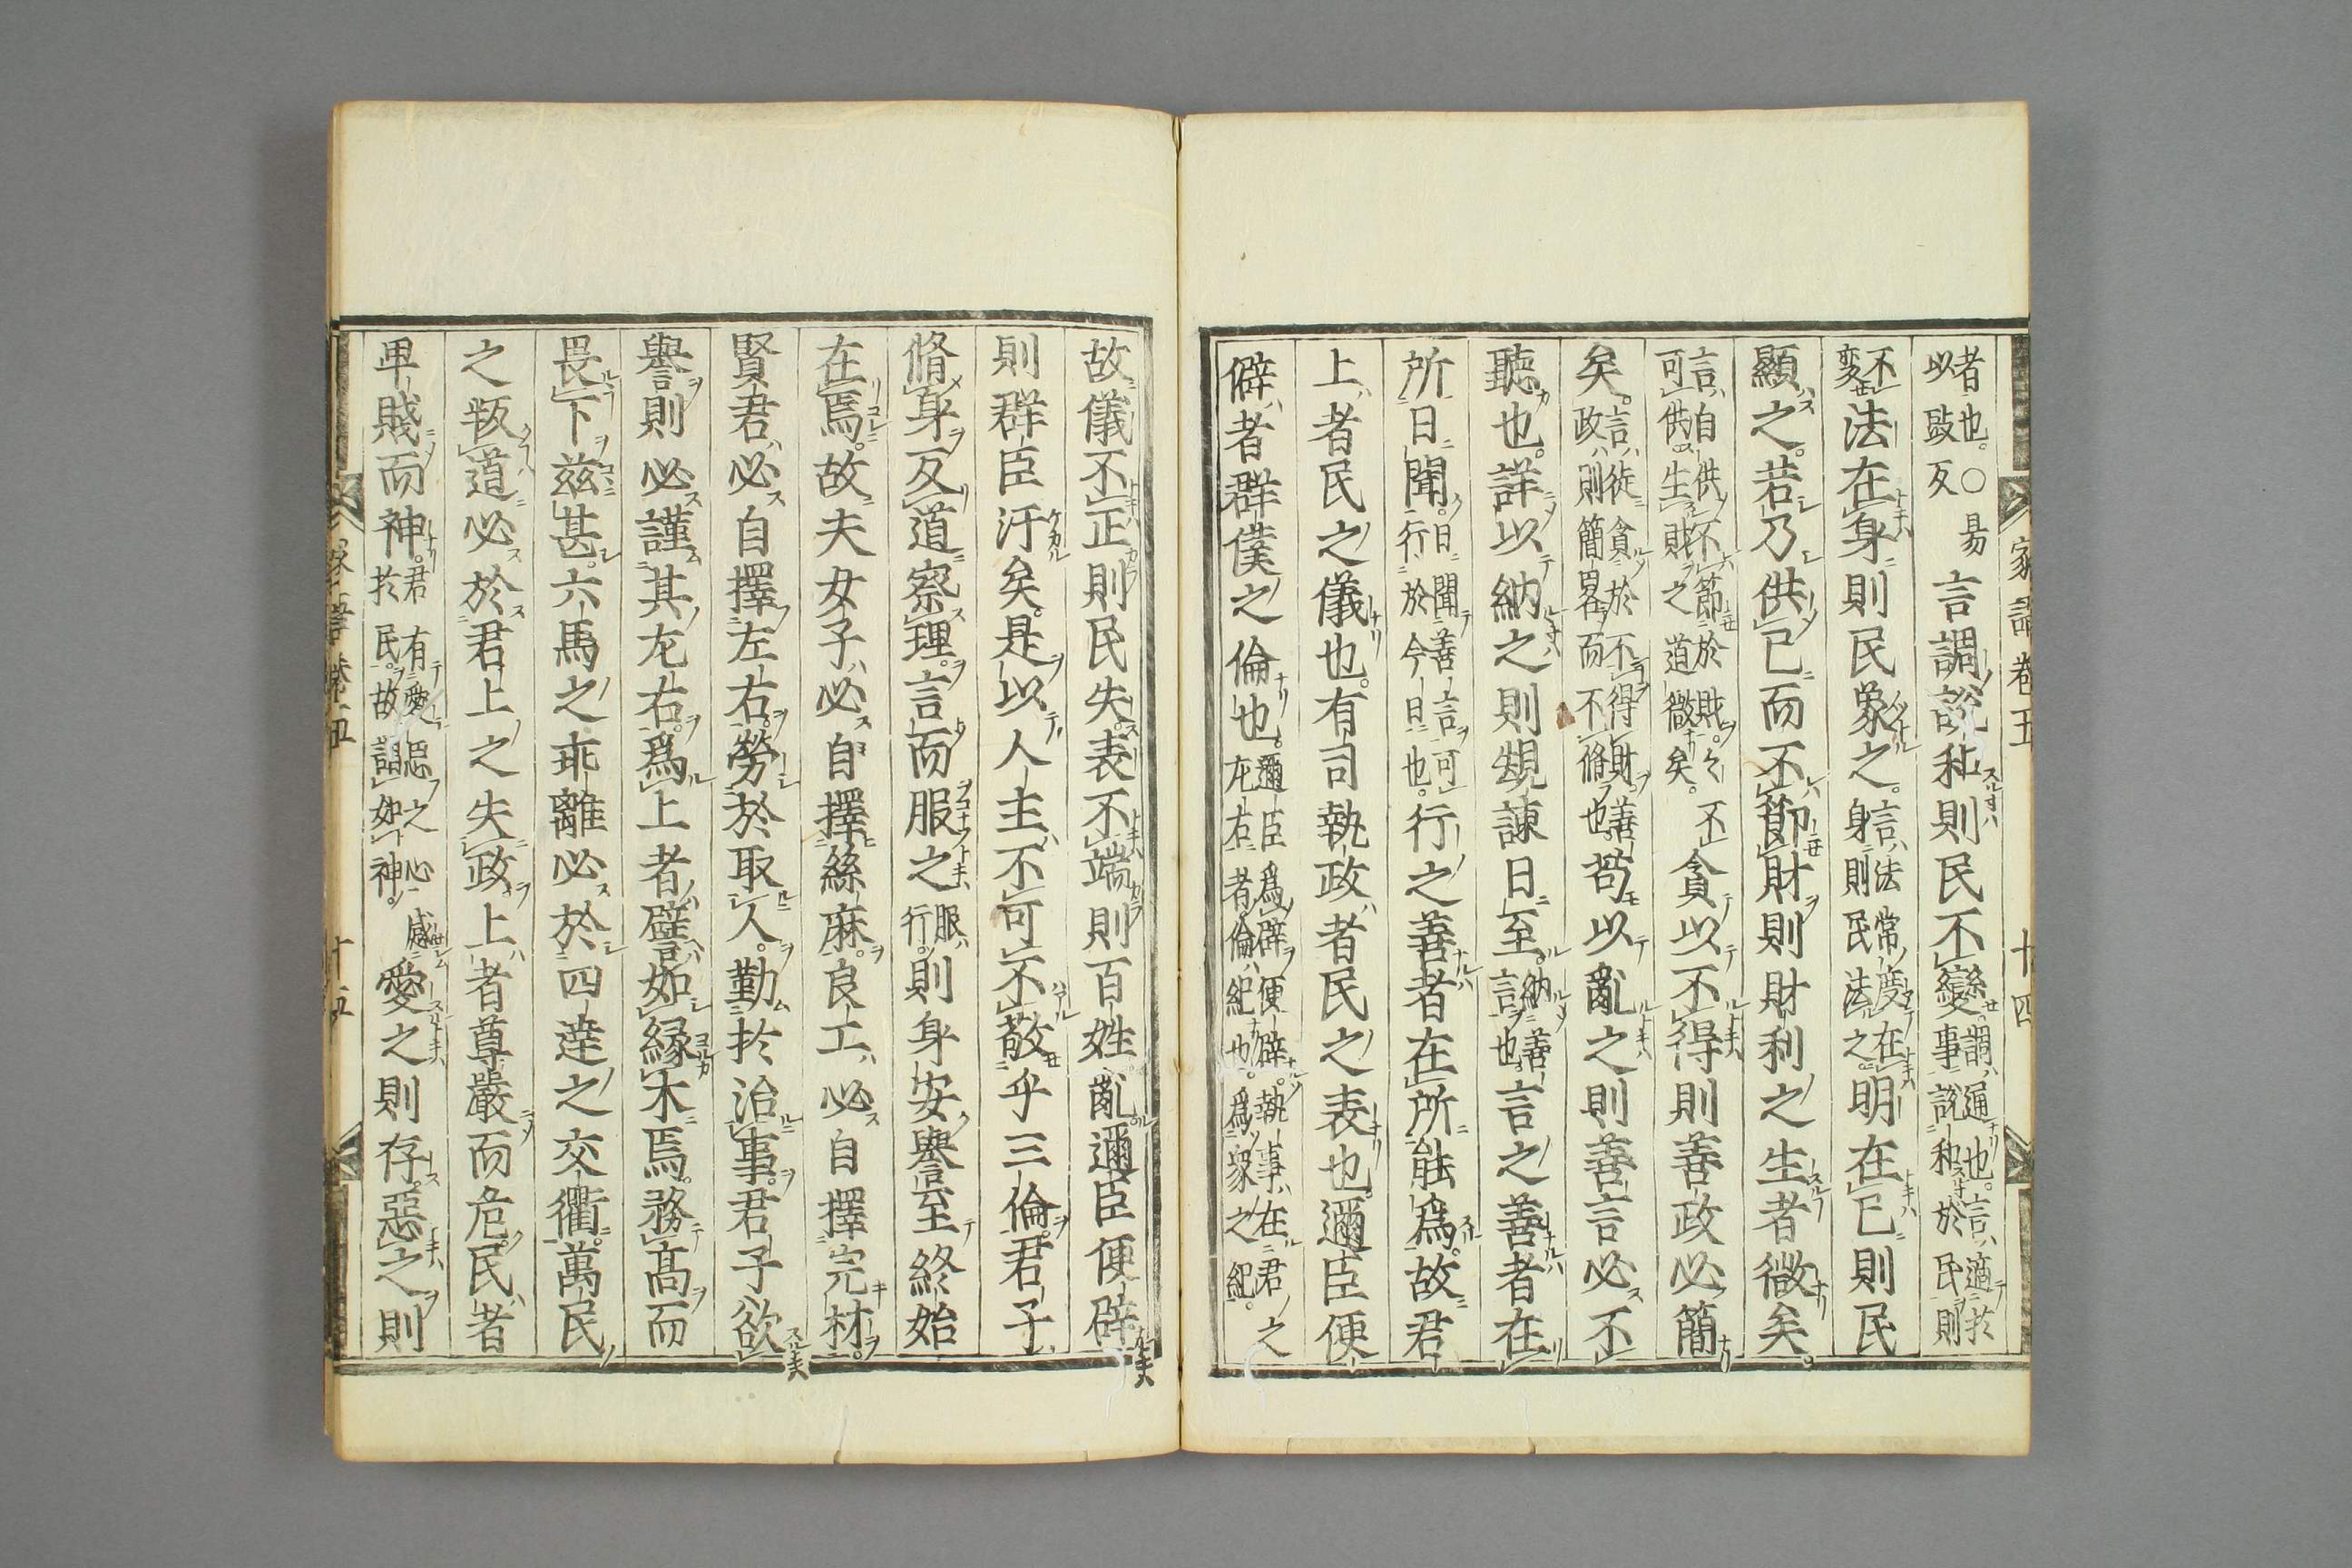 家語卷五 十四
者也。○昜以敲反言調說和則民不變。調、適也。言、適於事說和於民則
不変法在身則民象之。言、法常度在身則民法之明在已則民
顯之。若乃供已而不節財則財利之生者微矣。
言、自供不節於財々可供生財之道微矣。不貪以不得則善政必簡
矣。言、徒貪於不得財善政則簡畧而不脩也。苟以亂之則善言必不
聽也。詳以納之則䂓諫日至。納善言也言之善者在
所日聞。日聞善言可行於今日也。行之善者在所能爲。故君
上者民之儀也。有司執政者民之表也。邇臣便
僻者群僕之倫也。邇臣爲僻便辟。執事在君之左右者、倫紀也。爲衆之紀。
故儀不正則民失。表不端則百姓亂邇臣便辟
則群臣汙矣。是以人主不可不敬乎三倫。君子
脩身反道察理。言而服之服、行。則身安譽至終始
在焉。故夫女子必自擇絲麻。良工必自擇完材。
賢君必自擇左右。勞於取人。勤於治事。君子欲
譽則必謹其左右。爲上者譬如縁木焉。務高而
畏下茲甚。六馬之乖離必於四達之交衢。萬民
之叛道必於君上之失政。上者尊嚴而危。民者
卑賤而神。君有愛思之心感於民。故謂如神。愛之則存。惡之則
家語卷五 十五